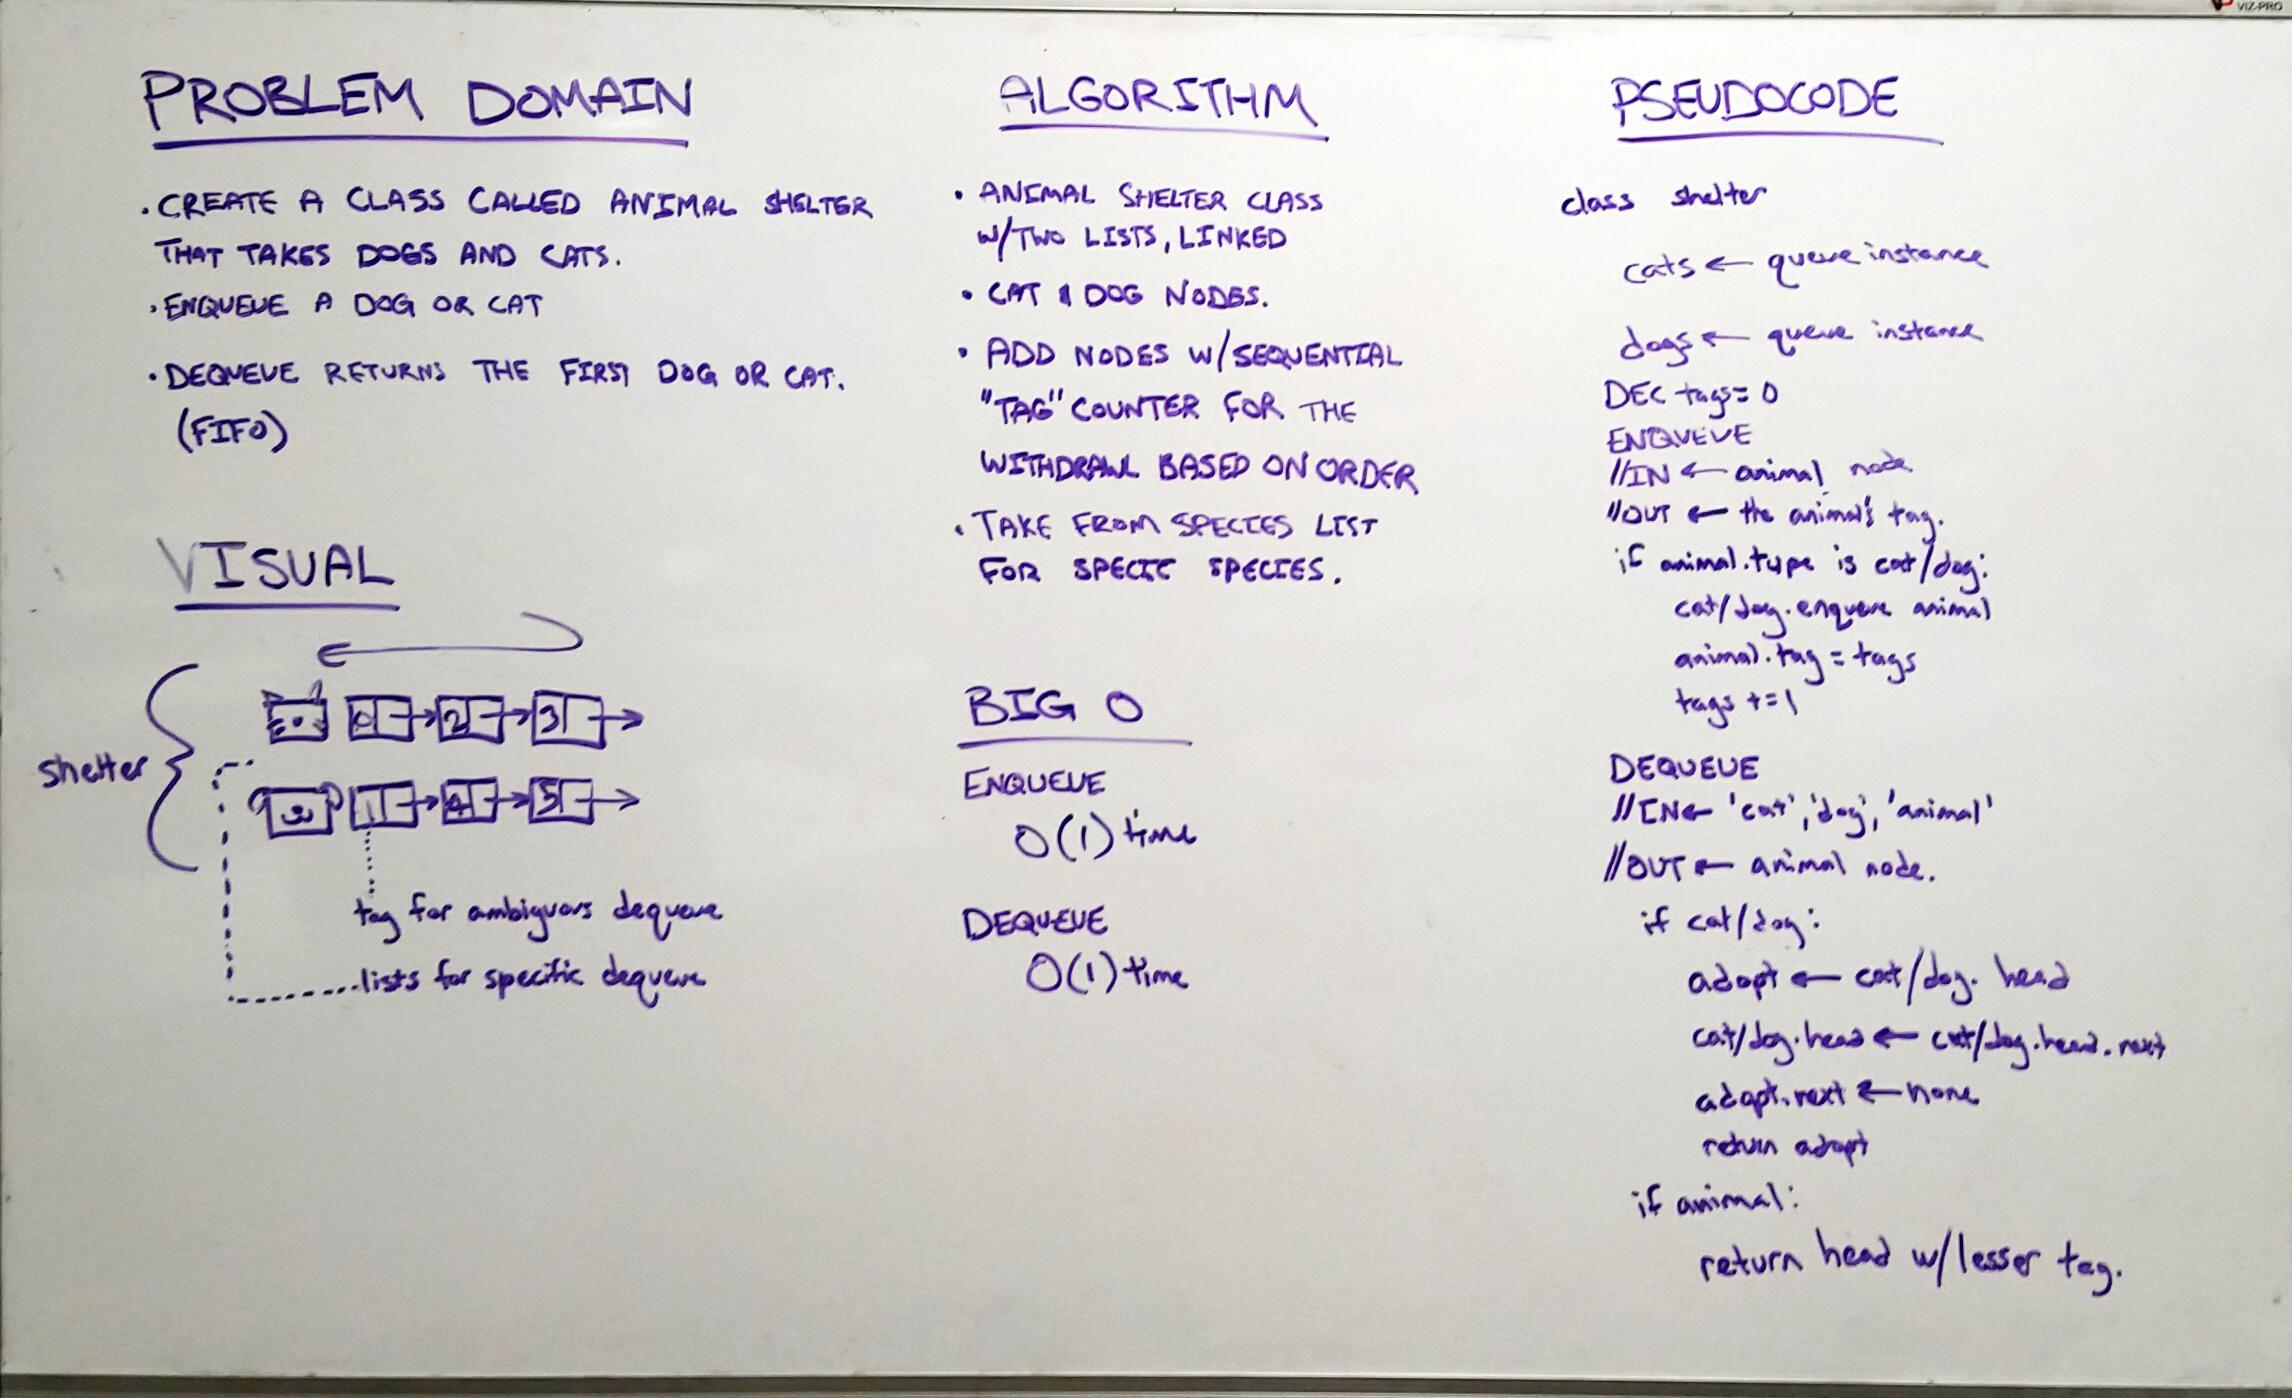 VIZ-PRO
PROBLEM DOMAIN
· CREATE A CLASS CALLED ANIMAL SHELTER
THAT TAKES DOGS AND CATS.
· ENQUEUE A DOG OR CAT
· DEQUEUE RETURNS THE FIRST DOG OR CAT.
(FIFO)
VISUAL
shelter
0 2 3
1 4 5
tag for ambiguous dequeue
lists for specific dequeue
ALGORITHM
· ANIMAL SHELTER CLASS
W/TWO LISTS, LINKED
· CAT & DOG NODES.
· ADD NODES W/SEQUENTIAL
"TAG" COUNTER FOR THE
WITHDRAWL BASED ON ORDER
· TAKE FROM SPECIES LIST
FOR SPECIC SPECIES.
BIG O
ENQUEUE
O(1) time
DEQUEUE
O(1) time
PSEUDOCODE
class shelter
cats ← queue instance
dogs ← queue instance
DEC tags = 0
ENQUEUE
//IN ← animal node
//OUT ← the animal's tag.
if animal.type is cat/dog:
cat/dog.enqueue animal
animal.tag = tags
tags += 1
DEQUEUE
//IN ← 'cat', 'dog', 'animal'
//OUT ← animal node.
if cat/dog:
adopt ← cat/dog. head
cat/dog.head ← cat/dog.head.next
adopt.next ← none
return adopt
if animal:
return head w/lesser tag.